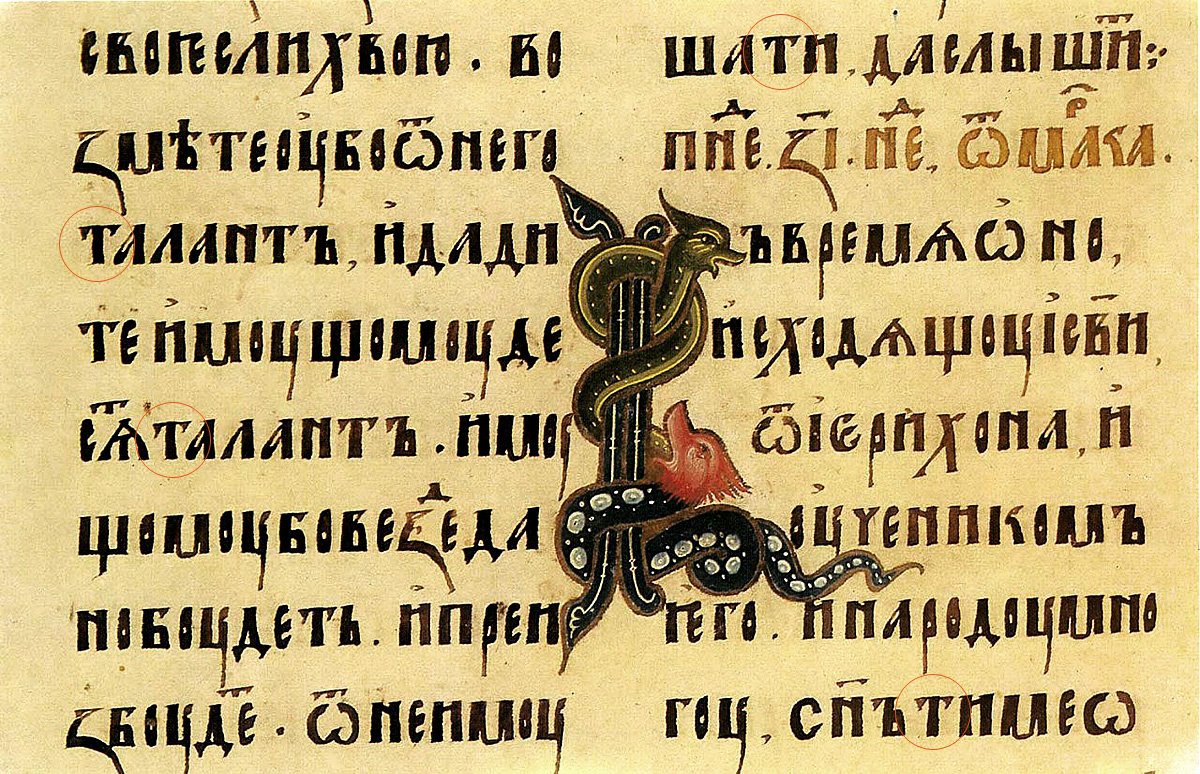 своѥслихвою. во
ꙁмѣтеоубоѿнего
талантъ, и҆дади
теи҆моущомоуде
сѧⷮталантъ. и҆моу
щомоубовеꙁⷣеда
нобоудеть. и҆преи
ꙁбоудеⷮ. ѿнеимоу
шати, даслышиⷮ:·
пнⷣе. ꙁ҃і. нⷣе, ѿмаⷬка.
Въвремѧѡно,
и҆сходѧщоуі҆с҃ви,
ѿі҆ерихона, и҆
оученикомъ
ѥго. и҆народоумно
гоу, сн҃ътимеѡ